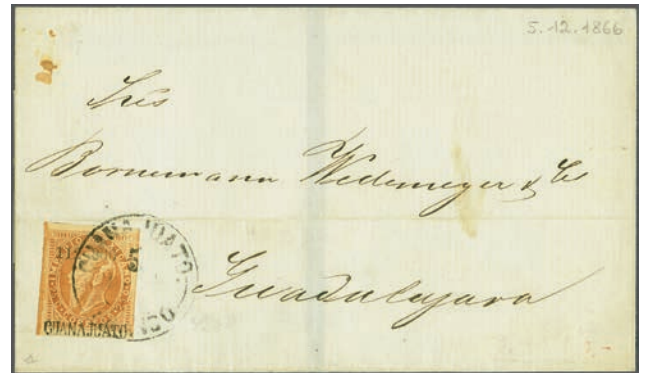 5.12.1866
Sres
Bornemann Wedemeyer & Ca
Guadalajara
GUANAJUATO
5
GUANAJUATO